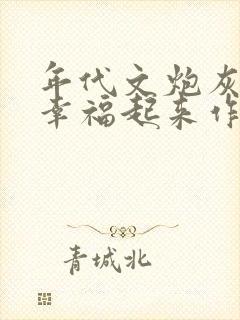 年代文炮灰
幸福起来作
青城北